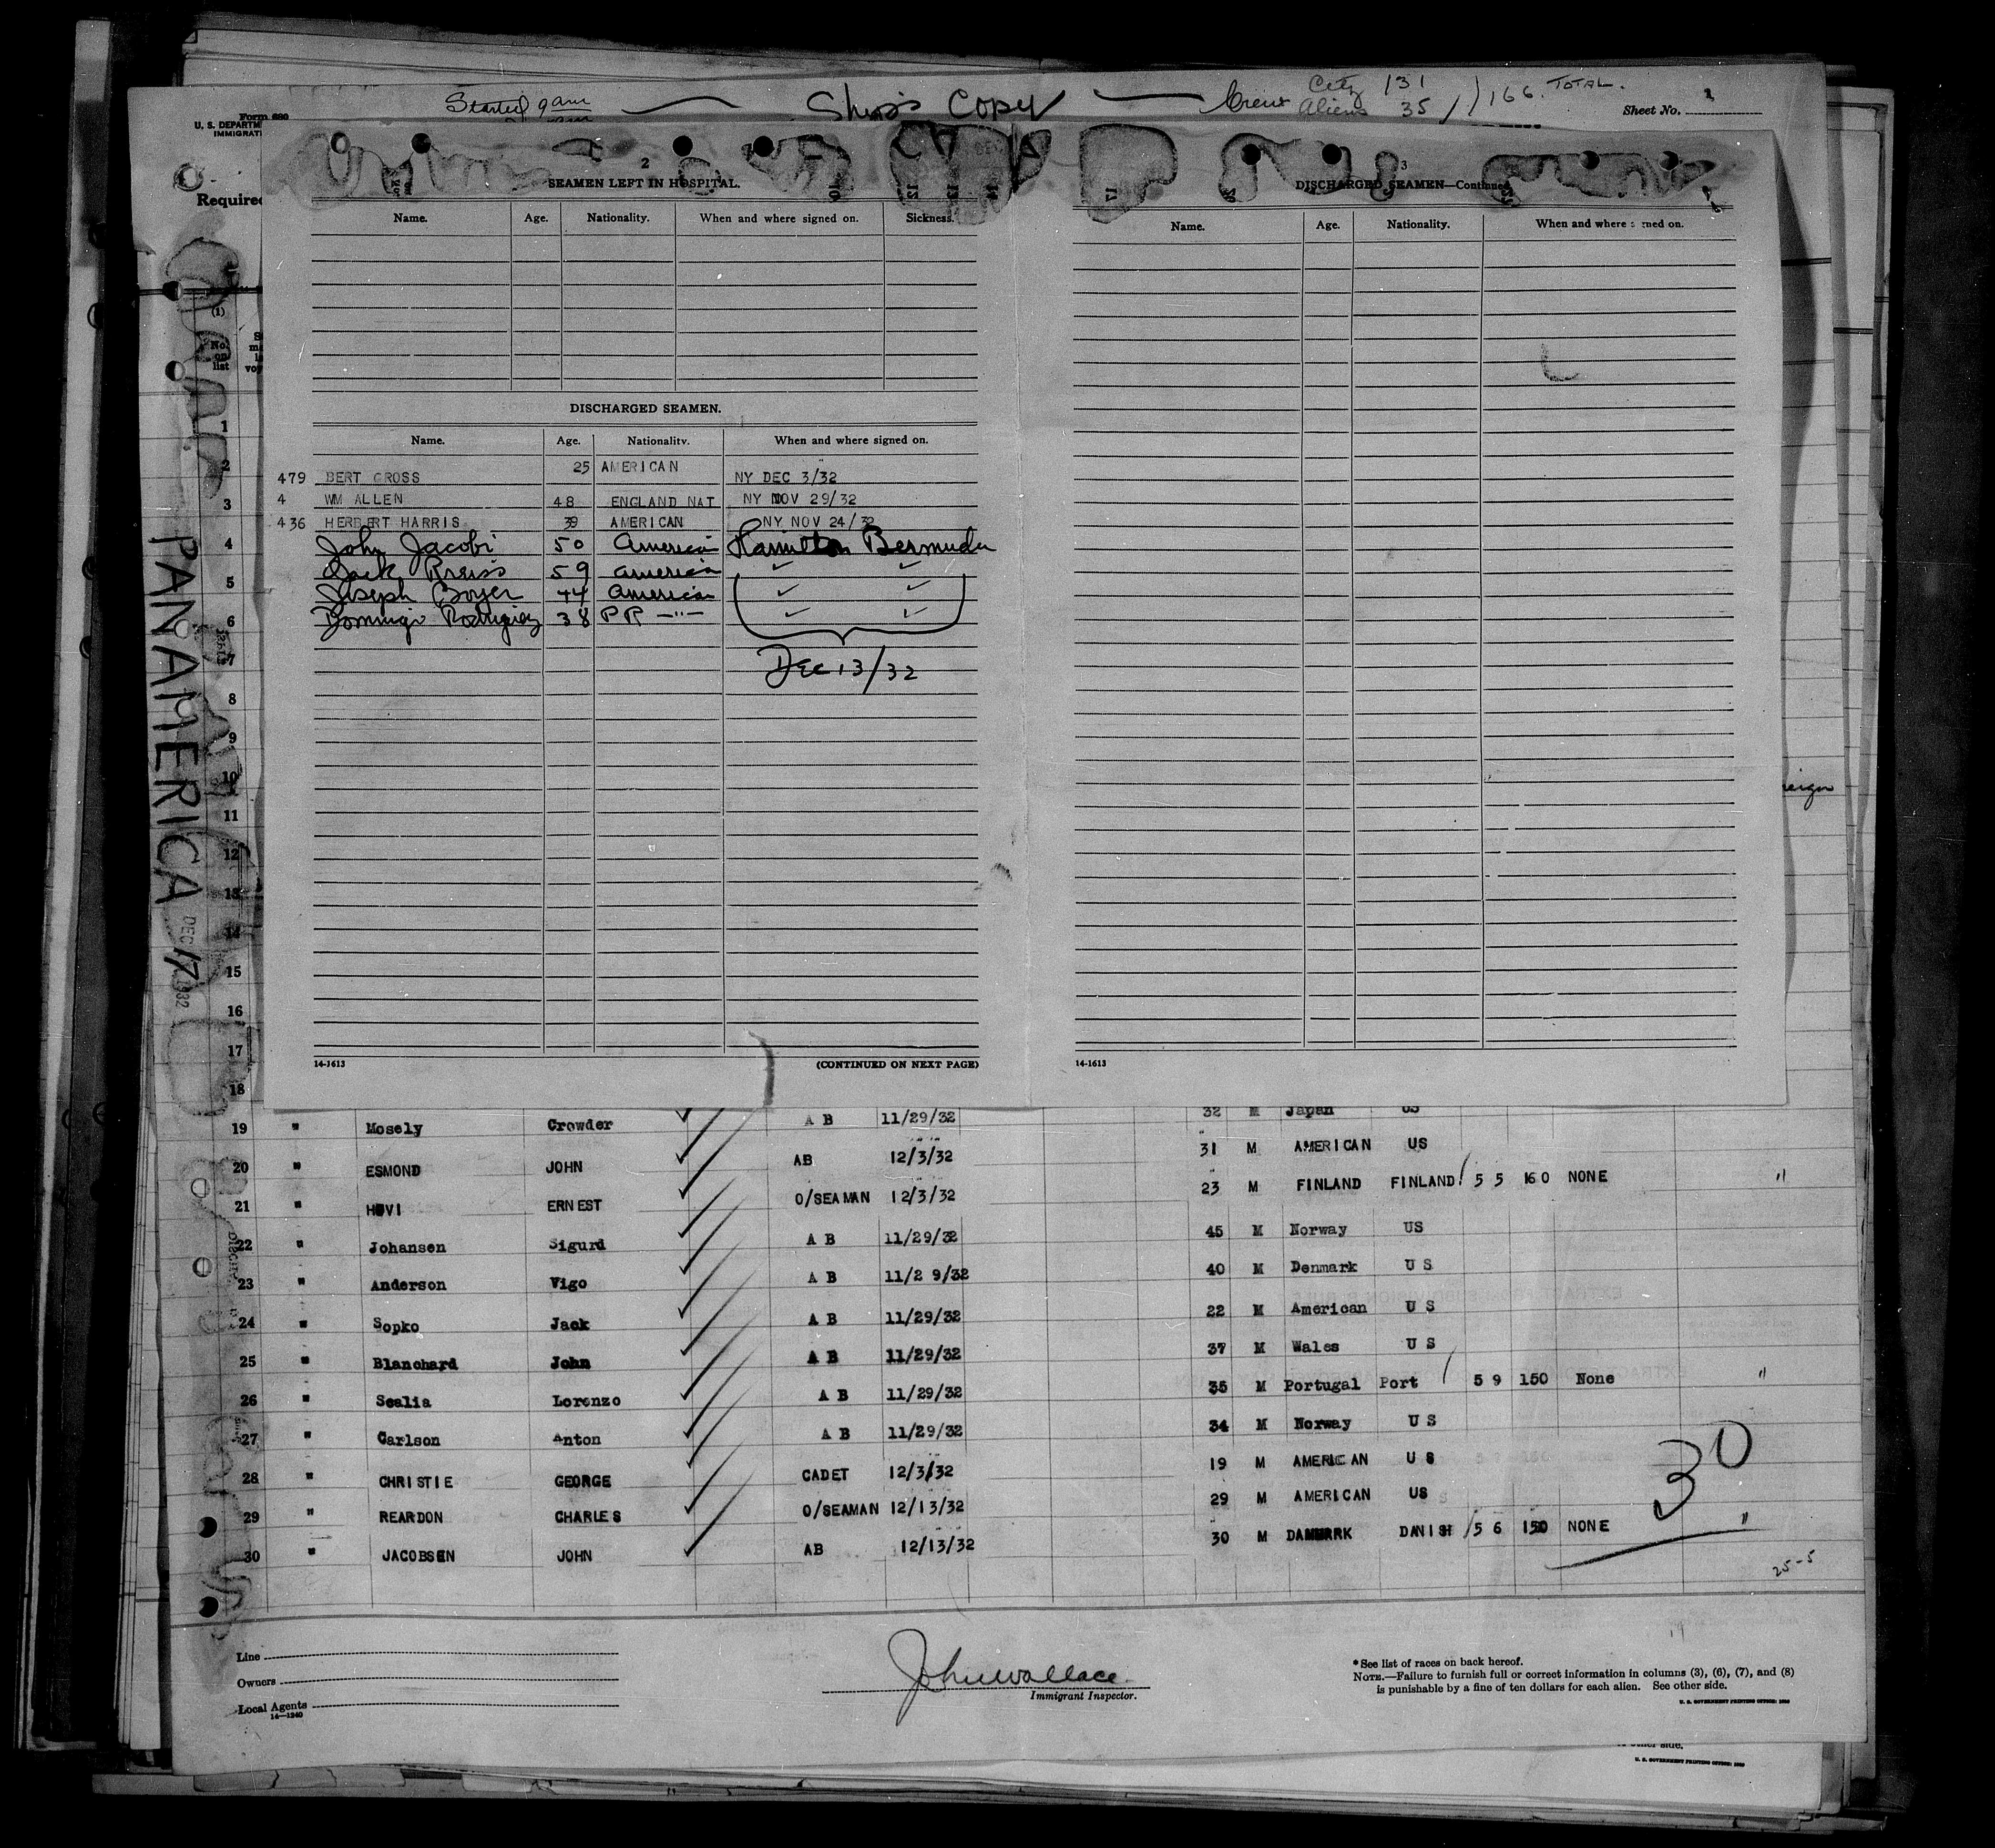 Started 9 am — Ship's Copy — Crew City 131
Aliens 35 / 166. TOTAL.
Form 680
U. S. DEPARTM
IMMIGRATI
Sheet No. 2
Required
2
SEAMEN LEFT IN HOSPITAL.
Name. Age. Nationality. When and where signed on. Sickness.
DISCHARGED SEAMEN.
Name. Age. Nationality. When and where signed on.
479 BERT GROSS 25 AMERICAN NY DEC 3/32
4 WM ALLEN 48 ENGLAND NAT NY NOV 29/32
436 HERBERT HARRIS 39 AMERICAN NY NOV 24/32
John Jacobi 50 American Hamilton Bermuda
Jack 59 American ✓ ✓
Joseph Boyer 44 American ✓ ✓
Domingo Rodriguez 38 PR —"— ✓ ✓
DEC 13/32
14-1613 (CONTINUED ON NEXT PAGE)
3
DISCHARGED SEAMEN—Continued
Name. Age. Nationality. When and where signed on.
14-1613
(1)
No. on list
1
2
3
4
5
6
7
8
9
10
11
12
13
14
15
16
17
18
PAN AMERICA DEC 17 1932
eign
19 " Mosely Crowder A B 11/29/32 32 M Japan US
20 " ESMOND JOHN AB 12/3/32 31 M AMERICAN US
21 " HOVI ERNEST O/SEAMAN 12/3/32 23 M FINLAND FINLAND 5 5 160 NONE "
22 " Johansen Sigurd A B 11/29/32 45 M Norway US
23 " Anderson Vigo A B 11/2 9/32 40 M Denmark U S
24 " Sopko Jack A B 11/29/32 22 M American U S
25 " Blanchard John A B 11/29/32 37 M Wales U S
26 " Scalia Lorenzo A B 11/29/32 35 M Portugal Port 5 9 150 None "
27 " Carlson Anton A B 11/29/32 34 M Norway U S
28 " CHRISTIE GEORGE CADET 12/3/32 19 M AMERICAN U S
29 " REARDON CHARLES O/SEAMAN 12/13/32 29 M AMERICAN US
30 " JACOBSEN JOHN AB 12/13/32 30 M DANMARK DANISH 5 6 150 NONE "
30
25-5
Line
Owners
Local Agents
14—1240
John Wallace
Immigrant Inspector.
* See list of races on back hereof.
NOTE.—Failure to furnish full or correct information in columns (3), (6), (7), and (8)
is punishable by a fine of ten dollars for each alien. See other side.
U. S. GOVERNMENT PRINTING OFFICE: 1930
other side.
U. S. GOVERNMENT PRINTING OFFICE: 1930